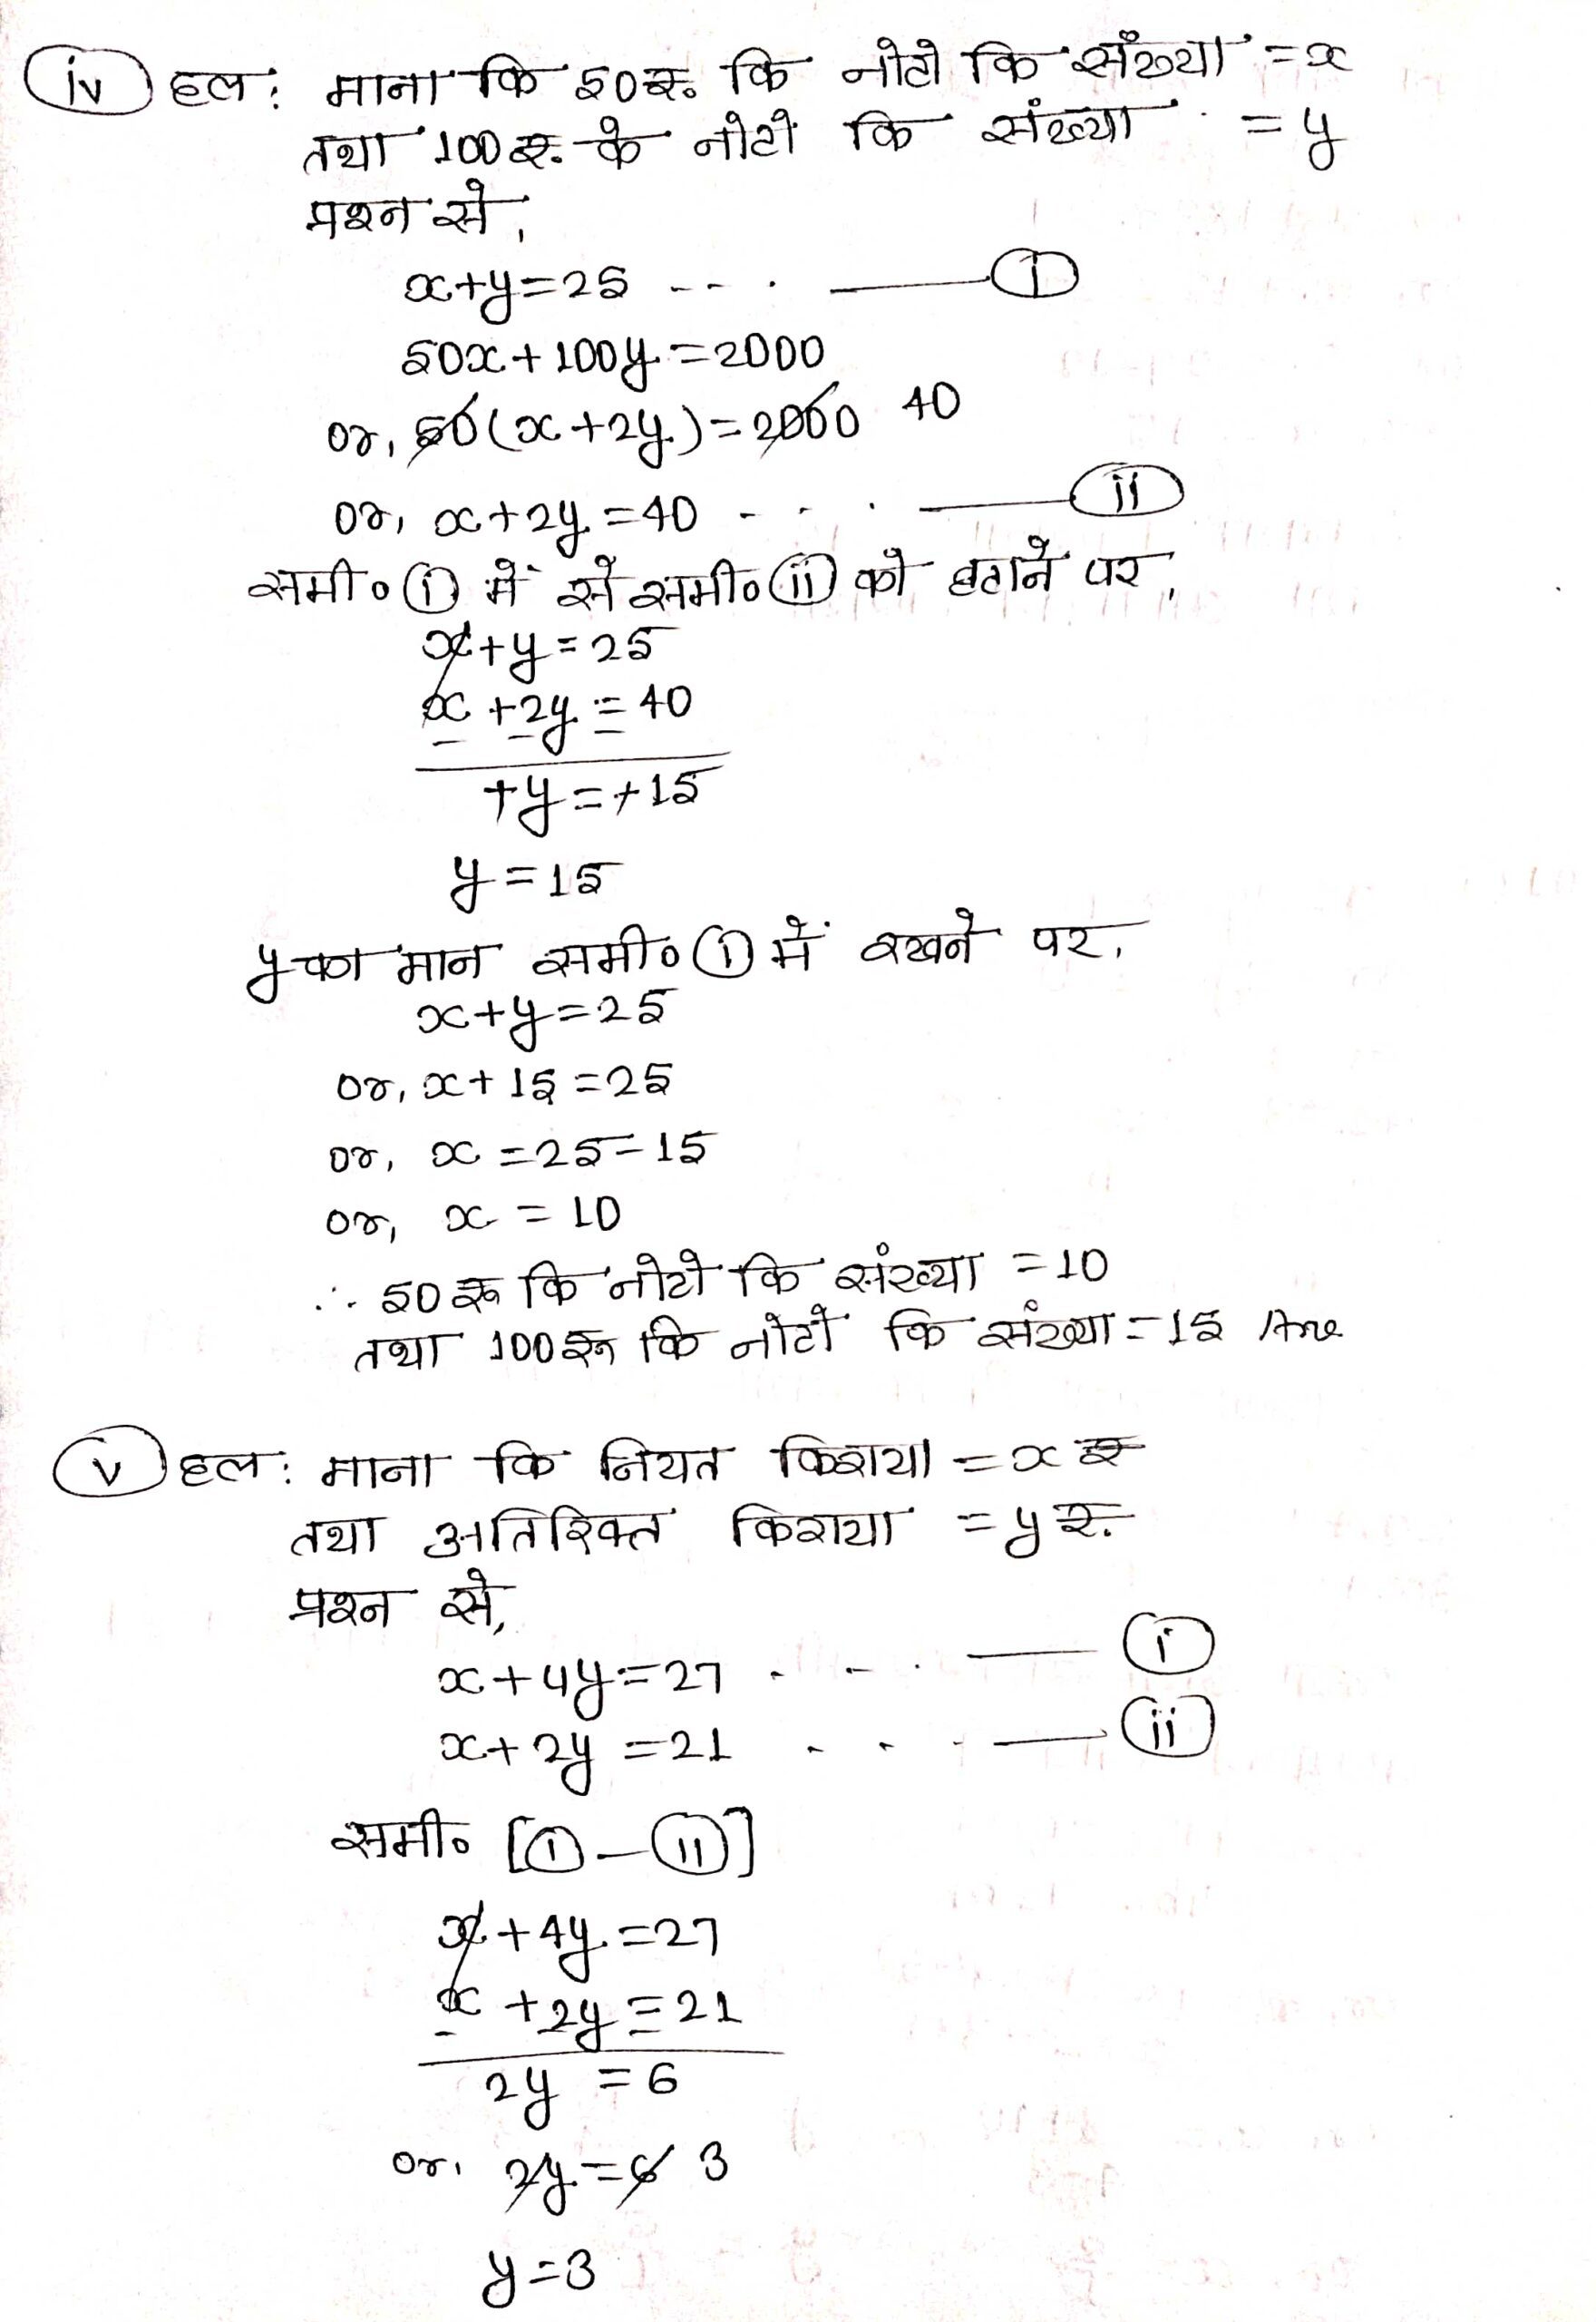 (iv) हल: माना कि 50रू. कि नोटो कि संँख्या = x
तथा 100रू. के नोटो कि संख्या = y
प्रश्न से,
x+y=25 --. — (i)
50x+100y=2000
or, 50(x+2y)=2000 40
or, x+2y=40 - - . — (ii)
समी० (i) में से समी० (ii) को हटाने पर,
x+y=25
x+2y=40
+y=+15
y=15
y का मान समी० (i) में रखने पर,
x+y=25
or, x+15=25
or, x=25-15
or, x=10
∴ 50रू कि नोटो कि संख्या = 10
तथा 100रू कि नोटों कि संख्या = 15 Ans
(v) हल: माना कि नियत किराया = x रू
तथा अतिरिक्त किराया = y रू.
प्रश्न से,
x+4y=27 - - . — (i)
x+2y=21 - - - — (ii)
समी० [(i)-(ii)]
x+4y=27
x+2y=21
2y=6
or, 2y=6 3
y=3